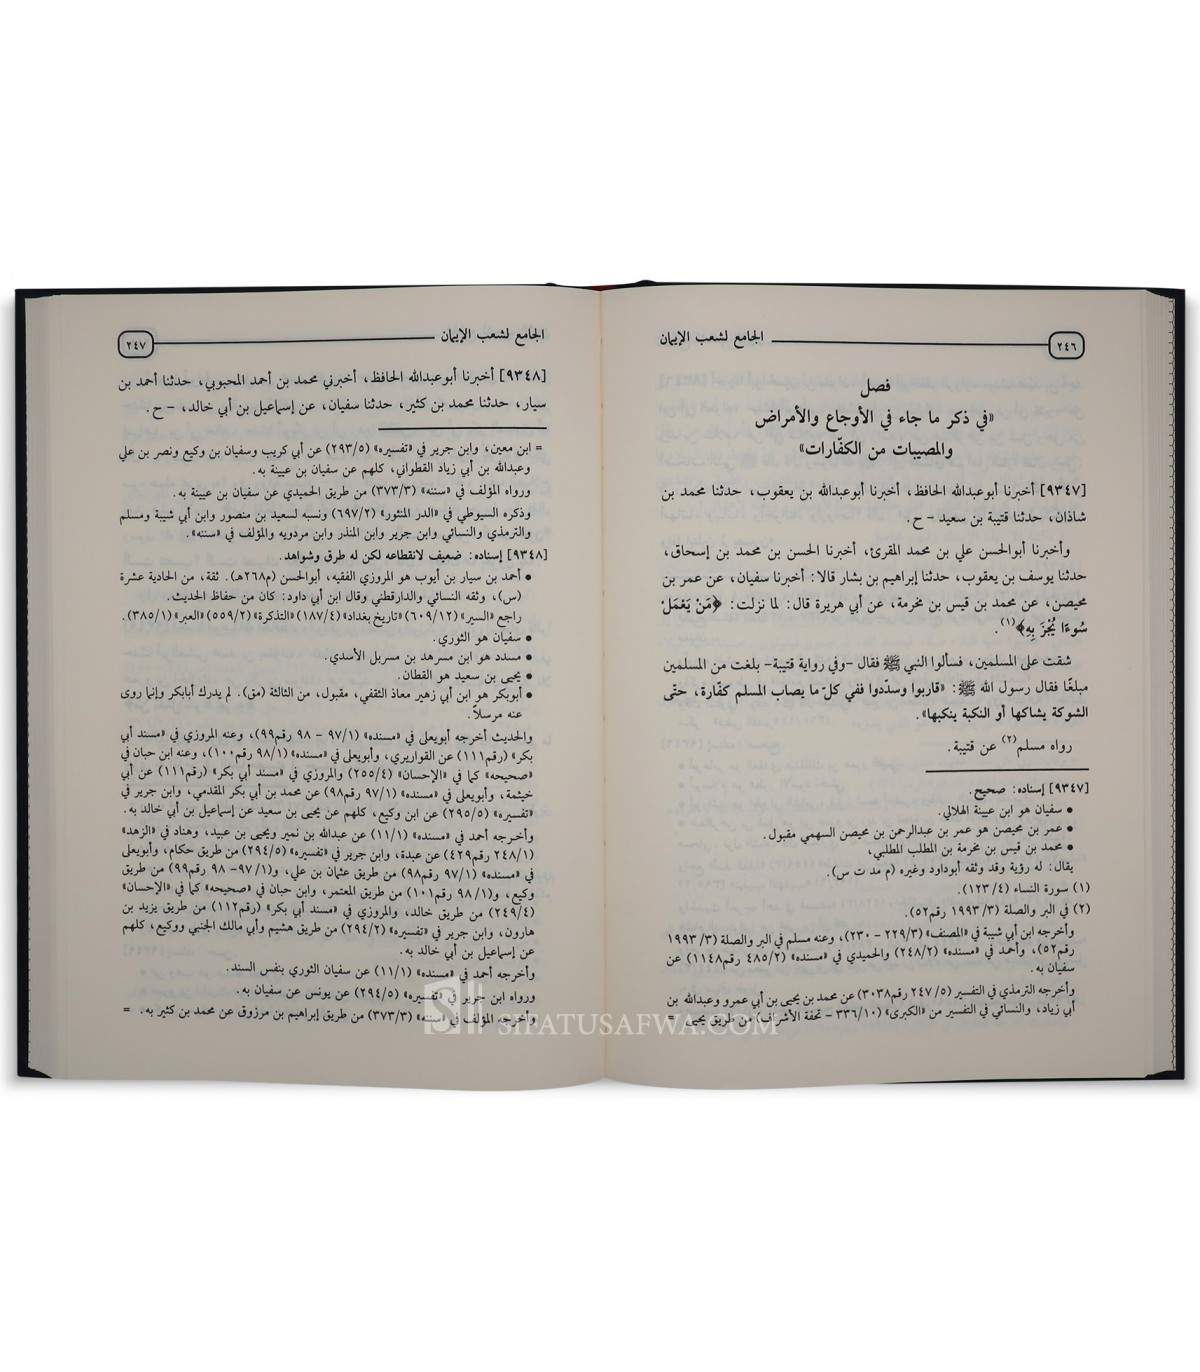 ٢٤٦ الجامع لشعب الإيمان
فصل
«في ذكر ما جاء في الأوجاع والأمراض
والمصيبات من الكفّارات»
[٩٣٤٧] أخبرنا أبو عبدالله الحافظ، أخبرنا أبو عبدالله بن يعقوب، حدثنا محمد بن
شاذان، حدثنا قتيبة بن سعيد – ح.
وأخبرنا أبو الحسن علي بن محمد المقرئ، أخبرنا الحسن بن محمد بن إسحاق،
حدثنا يوسف بن يعقوب، حدثنا إبراهيم بن بشار قالا: أخبرنا سفيان، عن عمر بن
محيصن، عن محمد بن قيس بن مخرمة، عن أبي هريرة قال: لما نزلت: ﴿مَنْ يَعْمَلْ
سُوءًا يُجْزَ بِهِ﴾(١).
شقت على المسلمين، فسألوا النبي ﷺ فقال -وفي رواية قتيبة- بلغت من المسلمين
مبلغًا فقال رسول الله ﷺ: «قاربوا وسدّدوا ففي كلّ ما يصاب المسلم كفّارة، حتّى
الشوكة يشاكها أو النكبة ينكبها».
رواه مسلم(٢) عن قتيبة.
[٩٣٤٧] إسناده: صحيح.
• سفيان هو ابن عيينة الهلالي.
• عمر بن محيصن هو عمر بن عبدالرحمن بن محيصن السهمي مقبول.
• محمد بن قيس بن مخرمة بن المطلب المطلبي،
يقال: له رؤية وقد وثقه أبوداود وغيره (م مد ت س).
(١) سورة النساء (١٢٣/٤).
(٢) في البر والصلة (١٩٩٣/٣ رقم٥٢).
وأخرجه ابن أبي شيبة في «المصنف» (٢٢٩/٣ - ٢٣٠)، وعنه مسلم في البر والصلة (١٩٩٣/٣
رقم٥٢)، وأحمد في «مسنده» (٢٤٨/٢) والحميدي في «مسنده» (٤٨٥/٢ رقم١١٤٨) عن
سفيان به.
وأخرجه الترمذي في التفسير (٢٤٧/٥ رقم٣٠٣٨) عن محمد بن يحيى بن أبي عمرو وعبدالله بن
أبي زياد، والنسائي في التفسير من «الكبرى» (٣٣٦/١٠ – تحفة الأشراف) من طريق يحيى =
الجامع لشعب الإيمان ٢٤٧
[٩٣٤٨] أخبرنا أبو عبدالله الحافظ، أخبرني محمد بن أحمد المحبوبي، حدثنا أحمد بن
سيار، حدثنا محمد بن كثير، حدثنا سفيان، عن إسماعيل بن أبي خالد، – ح.
= ابن معين، وابن جرير في «تفسيره» (٢٩٣/٥) عن أبي كريب وسفيان بن وكيع ونصر بن علي
وعبدالله بن أبي زياد القطواني، كلهم عن سفيان بن عيينة به.
ورواه المؤلف في «سننه» (٣٧٣/٣) من طريق الحميدي عن سفيان بن عيينة به.
وذكره السيوطي في «الدر المنثور» (٦٩٧/٢) ونسبه لسعيد بن منصور وابن أبي شيبة ومسلم
والترمذي والنسائي وابن جرير وابن المنذر وابن مردويه والمؤلف في «سننه».
[٩٣٤٨] إسناده: ضعيف لانقطاعه لكن له طرق وشواهد.
• أحمد بن سيار بن أيوب هو المروزي الفقيه، أبوالحسن (م٢٦٨هـ). ثقة، من الحادية عشرة
(س)، وثقه النسائي والدارقطني وقال ابن أبي داود: كان من حفاظ الحديث.
راجع «السير» (٦٠٩/١٢) «تاريخ بغداد» (١٨٧/٤) «التذكرة» (٥٥٩/٢) «العبر» (٣٨٥/١).
• سفيان هو الثوري.
• مسدد هو ابن مسرهد بن مسربل الأسدي.
• يحيى بن سعيد هو القطان.
• أبوبكر هو ابن أبي زهير معاذ الثقفي، مقبول، من الثالثة (مق). لم يدرك أبابكر وإنما روى
عنه مرسلاً.
والحديث أخرجه أبويعلى في «مسنده» (٩٧/١ – ٩٨ رقم٩٩)، وعنه المروزي في «مسند أبي
بكر» (رقم١١١) عن القواريري، وأبويعلى في «مسنده» (٩٨/١ رقم١٠٠)، وعنه ابن حبان في
«صحيحه» كما في «الإحسان» (٢٥٥/٤) والمروزي في «مسند أبي بكر» (رقم١١١) عن أبي
خيثمة، وأبويعلى في «مسنده» (٩٧/١ رقم٩٨) عن محمد بن أبي بكر المقدمي، وابن جرير في
«تفسيره» (٢٩٥/٥) عن ابن وكيع، كلهم عن يحيى بن سعيد عن إسماعيل بن أبي خالد به.
وأخرجه أحمد في «مسنده» (١١/١) عن عبدالله بن نمير ويحيى بن عبيد، وهناد في «الزهد»
(٢٤٨/١ رقم٤٢٩) عن عبدة، وابن جرير في «تفسيره» (٢٩٤/٥) من طريق حكام، وأبويعلى
في «مسنده» (٩٧/١ رقم٩٨) من طريق عثمان بن علي، و(٩٧/١– ٩٨ رقم٩٩) من طريق
وكيع، و(٩٨/١ رقم١٠١) من طريق المعتمر، وابن حبان في «صحيحه» كما في «الإحسان»
(٢٤٩/٤) من طريق خالد، والمروزي في «مسند أبي بكر» (رقم١١٢) من طريق يزيد بن
هارون، وابن جرير في «تفسيره» (٢٩٤/٢) من طريق هشيم وأبي مالك الجنبي ووكيع، كلهم
عن إسماعيل بن أبي خالد به.
وأخرجه أحمد في «مسنده» (١١/١) عن سفيان الثوري بنفس السند.
ورواه ابن جرير في «تفسيره» (٢٩٤/٥) عن يونس عن سفيان به.
وأخرجه المؤلف في «سننه» (٣٧٣/٣) من طريق إبراهيم بن مرزوق عن محمد بن كثير به. =
SIFATUSAFWA.COM